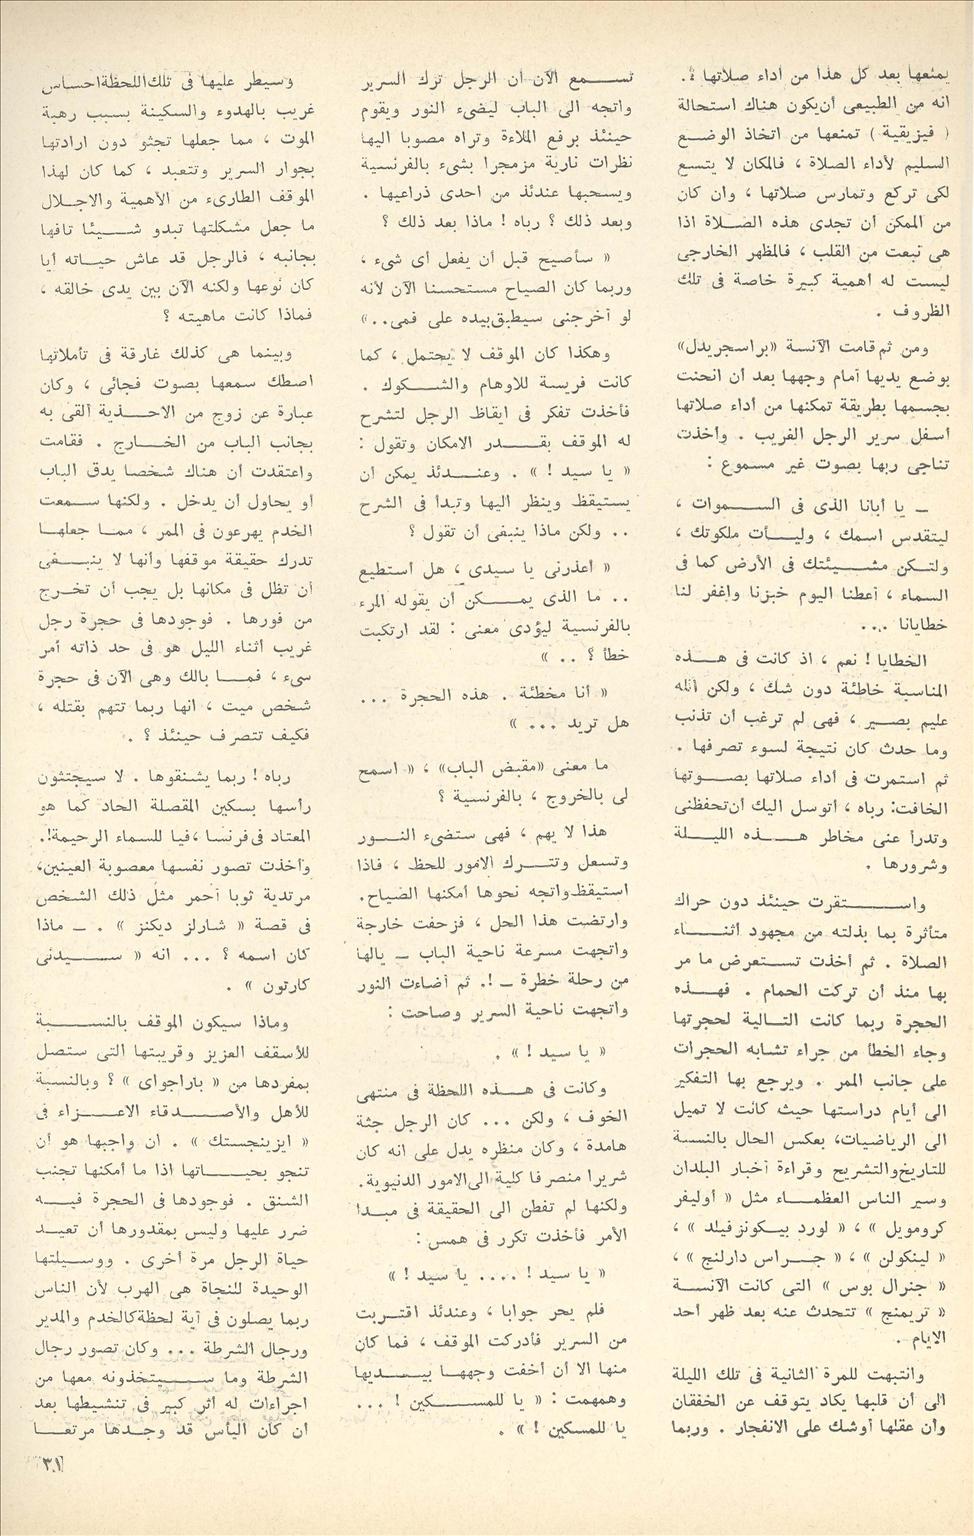 يمنعها بعد كل هذا من أداء صلاتها ؟.
انه من الطبيعى أن يكون هناك استحالة
( فيزيقية ) تمنعها من اتخاذ الوضع
السليم لأداء الصلاة ، فالمكان لا يتسع
لكى تركع وتمارس صلاتها ، وان كان
من الممكن أن تجدى هذه الصلاة اذا
هى نبعت من القلب ، فالمظهر الخارجى
ليست له أهمية كبيرة خاصة فى تلك
الظروف .
ومن ثم قامت الآنسة «براسجريدل»
بوضع يديها أمام وجهها بعد أن انحنت
بجسمها بطريقة تمكنها من أداء صلاتها
أسفل سرير الرجل الغريب . وأخذت
تناجى ربها بصوت غير مسموع :
ـ يا أبانا الذى فى السموات ،
ليتقدس اسمك ، وليأت ملكوتك ،
ولتكن مشيئتك فى الأرض كما فى
السماء ، أعطنا اليوم خبزنا واغفر لنا
خطايانا ...
الخطايا ! نعم ، اذ كانت فى هذه
المناسبة خاطئة دون شك ، ولكن الله
عليم بصير ، فهى لم ترغب أن تذنب
وما حدث كان نتيجة لسوء تصرفها .
ثم استمرت فى أداء صلاتها بصوتها
الخافت: رباه ، أتوسل اليك أن تحفظنى
وتدرأ عنى مخاطر هذه الليلة
وشرورها .
واستقرت حينئذ دون حراك
متأثرة بما بذلته من مجهود أثناء
الصلاة . ثم أخذت تستعرض ما مر
بها منذ أن تركت الحمام . فهذه
الحجرة ربما كانت التالية لحجرتها
وجاء الخطأ من جراء تشابه الحجرات
على جانب الممر . ويرجع بها التفكير
الى أيام دراستها حيث كانت لا تميل
الى الرياضيات، بعكس الحال بالنسبة
للتاريخ والتشريح وقراءة أخبار البلدان
وسير الناس العظماء مثل « أوليفر
كرومويل » ، « لورد بيكونزفيلد » ،
« لينكولن » ، « جراس دارلنج » ،
« جنرال بوس » التى كانت الآنسة
« تريمنج » تتحدث عنه بعد ظهر أحد
الايام .
وانتبهت للمرة الثانية فى تلك الليلة
الى أن قلبها يكاد يتوقف عن الخفقان
وان عقلها أوشك على الانفجار . وربما
تسمع الآن ان الرجل ترك السرير
واتجه الى الباب ليضىء النور ويقوم
حينئذ برفع الملاءة وتراه مصوبا اليها
نظرات نارية مزمجرا بشىء بالفرنسية
ويسحبها عندئذ من احدى ذراعيها .
وبعد ذلك ؟ رباه ! ماذا بعد ذلك ؟
« سأصيح قبل أن يفعل أى شىء ،
وربما كان الصياح مستحسنا الآن لأنه
لو أخرجنى سيطبق بيده على فمى..»
وهكذا كان الموقف لا يحتمل ، كما
كانت فريسة للأوهام والشكوك .
فأخذت تفكر فى ايقاظ الرجل لتشرح
له الموقف بقدر الامكان وتقول :
« يا سيد ! » . وعندئذ يمكن أن
يستيقظ وينظر اليها وتبدأ فى الشرح
.. ولكن ماذا ينبغى أن تقول ؟
« أعذرنى يا سيدى ، هل أستطيع
.. ما الذى يمكن أن يقوله المرء
بالفرنسية ليؤدى معنى : لقد ارتكبت
خطأ ؟ .. »
« أنا مخطئة . هذه الحجرة ...
هل تريد ... »
ما معنى «مقبض الباب» ، « اسمح
لى بالخروج ، بالفرنسية ؟
هذا لا يهم ، فهى ستضىء النور
وتسعل وتترك الامور للحظ ، فاذا
استيقظ واتجه نحوها أمكنها الصياح.
وارتضت هذا الحل ، فزحفت خارجة
واتجهت مسرعة ناحية الباب ـ يالها
من رحلة خطرة ـ !. ثم أضاءت النور
واتجهت ناحية السرير وصاحت :
« يا سيد ! » .
وكانت فى هذه اللحظة فى منتهى
الخوف ، ولكن ... كان الرجل جثة
هامدة ، وكان منظره يدل على انه كان
شريرا منصرفا كلية الى الامور الدنيوية.
ولكنها لم تفطن الى الحقيقة فى مبدا
الأمر فأخذت تكرر فى همس :
« يا سيد ! .... يا سيد ! »
فلم يحر جوابا ، وعندئذ اقتربت
من السرير فأدركت الموقف ، فما كان
منها الا أن أخفت وجهها بيديها
وهمهمت : « يا للمسكين ! ...
يا للمسكين ! » .
وسيطر عليها فى تلك اللحظة احساس
غريب بالهدوء والسكينة بسبب رهبة
الموت ، مما جعلها تجثو دون ارادتها
بجوار السرير وتتعبد ، كما كان لهذا
الموقف الطارىء من الأهمية والاجلال
ما جعل مشكلتها تبدو شيئا تافها
بجانبه ، فالرجل قد عاش حياته أيا
كان نوعها ولكنه الآن بين يدى خالقه ،
فماذا كانت ماهيته ؟
وبينما هى كذلك غارقة فى تأملاتها
اصطك سمعها بصوت فجائى ، وكان
عبارة عن زوج من الاحذية ألقى به
بجانب الباب من الخارج . فقامت
واعتقدت أن هناك شخصا يدق الباب
أو يحاول أن يدخل . ولكنها سمعت
الخدم يهرعون فى الممر ، مما جعلها
تدرك حقيقة موقفها وأنها لا ينبغى
أن تظل فى مكانها بل يجب أن تخرج
من فورها . فوجودها فى حجرة رجل
غريب أثناء الليل هو فى حد ذاته أمر
سىء ، فما بالك وهى الآن فى حجرة
شخص ميت ، انها ربما تتهم بقتله ،
فكيف تتصرف حينئذ ؟ .
رباه ! ربما يشنقوها . لا سيجتثون
رأسها بسكين المقصلة الحاد كما هو
المعتاد فى فرنسا ، فيا للسماء الرحيمة!.
وأخذت تصور نفسها معصوبة العينين،
مرتدية ثوبا أحمر مثل ذلك الشخص
فى قصة « شارلز ديكنز » . ـ ماذا
كان اسمه ؟ ... انه « سيدنى
كارتون » .
وماذا سيكون الموقف بالنسبة
للأسقف العزيز وقريبتها التى ستصل
بمفردها من « باراجواى » ؟ وبالنسبة
للأهل والأصدقاء الاعزاء فى
« ايزينجستك » . ان واجبها هو أن
تنجو بحياتها اذا ما أمكنها تجنب
الشنق . فوجودها فى الحجرة فيه
ضرر عليها وليس بمقدورها أن تعيد
حياة الرجل مرة أخرى . ووسيلتها
الوحيدة للنجاة هى الهرب لأن الناس
ربما يصلون فى أية لحظة كالخدم والمدير
ورجال الشرطة ... وكان تصور رجال
الشرطة وما سيتخذونه معها من
اجراءات له أثر كبير فى تنشيطها بعد
أن كان اليأس قد وجدها مرتعا
٣١